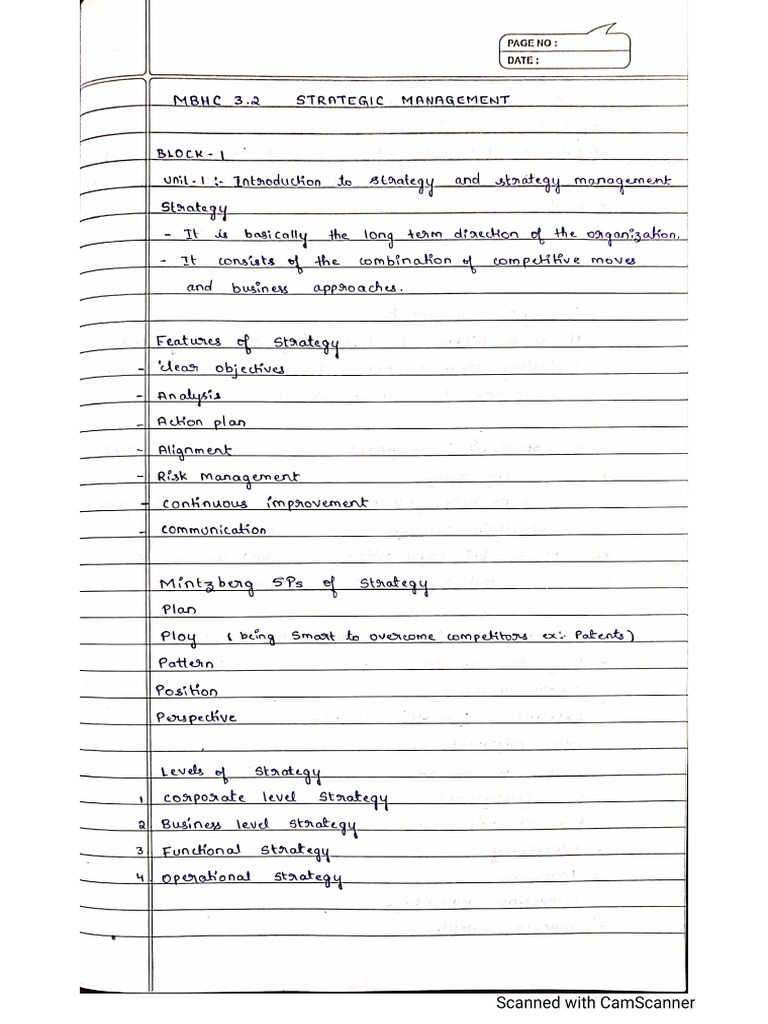 PAGE NO :
DATE :
MBHC 3.2 STRATEGIC MANAGEMENT
BLOCK - 1
Unit - 1 :- Introduction to strategy and strategy management
Strategy
- It is basically the long term direction of the organization.
- It consists of the combination of competitive moves
and business approaches.
Features of Strategy
- clear objectives
- Analysis
- Action plan
- Alignment
- Risk Management
- continuous improvement
- communication
Mintzberg 5Ps of Strategy
Plan
Ploy ( being Smart to overcome competitors ex:- Patents)
Pattern
Position
Perspective
Levels of Strategy
1 corporate level Strategy
2 Business level Strategy
3 Functional Strategy
4 Operational Strategy
Scanned with CamScanner